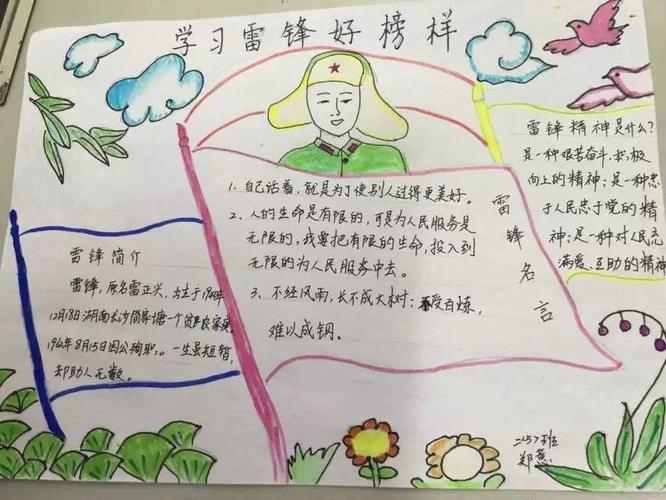 学习雷锋好榜样
雷锋简介
雷锋,原名雷正兴,出生于1940年
12月18日湖南长沙简家塘一个贫农家庭
1962年8月15日因公殉职,。一生虽短暂,
却助人无数。
1、自己活着,就是为了使别人过得更美好。
2、人的生命是有限的,可是为人民服务是
无限的,我要把有限的生命,投入到
无限的为人民服务中去。
3、不经风雨,长不成大树;不受百炼,
难以成钢。
雷锋名言
雷锋精神是什么?
是一种艰苦奋斗,积极
向上的精神;是一种忠
于人民忠于党的精
神;是一种对人充
满爱、互助的精神
班
郑